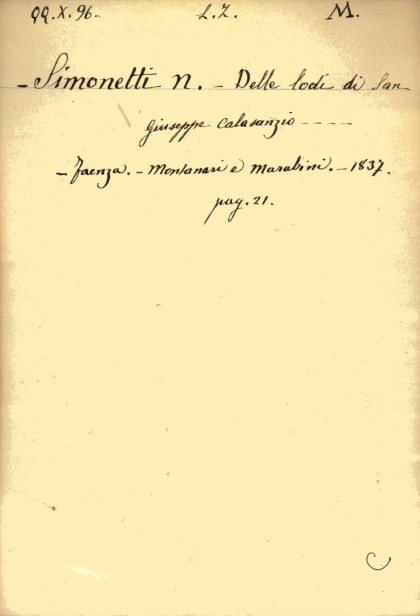 QQ.X.96. L.Z. M.
- Simonetti n. - Delle lodi di San
Giuseppe Calasanzio ----
- Faenza. - Montanari e Marabini. - 1837.
pag. 21.
C